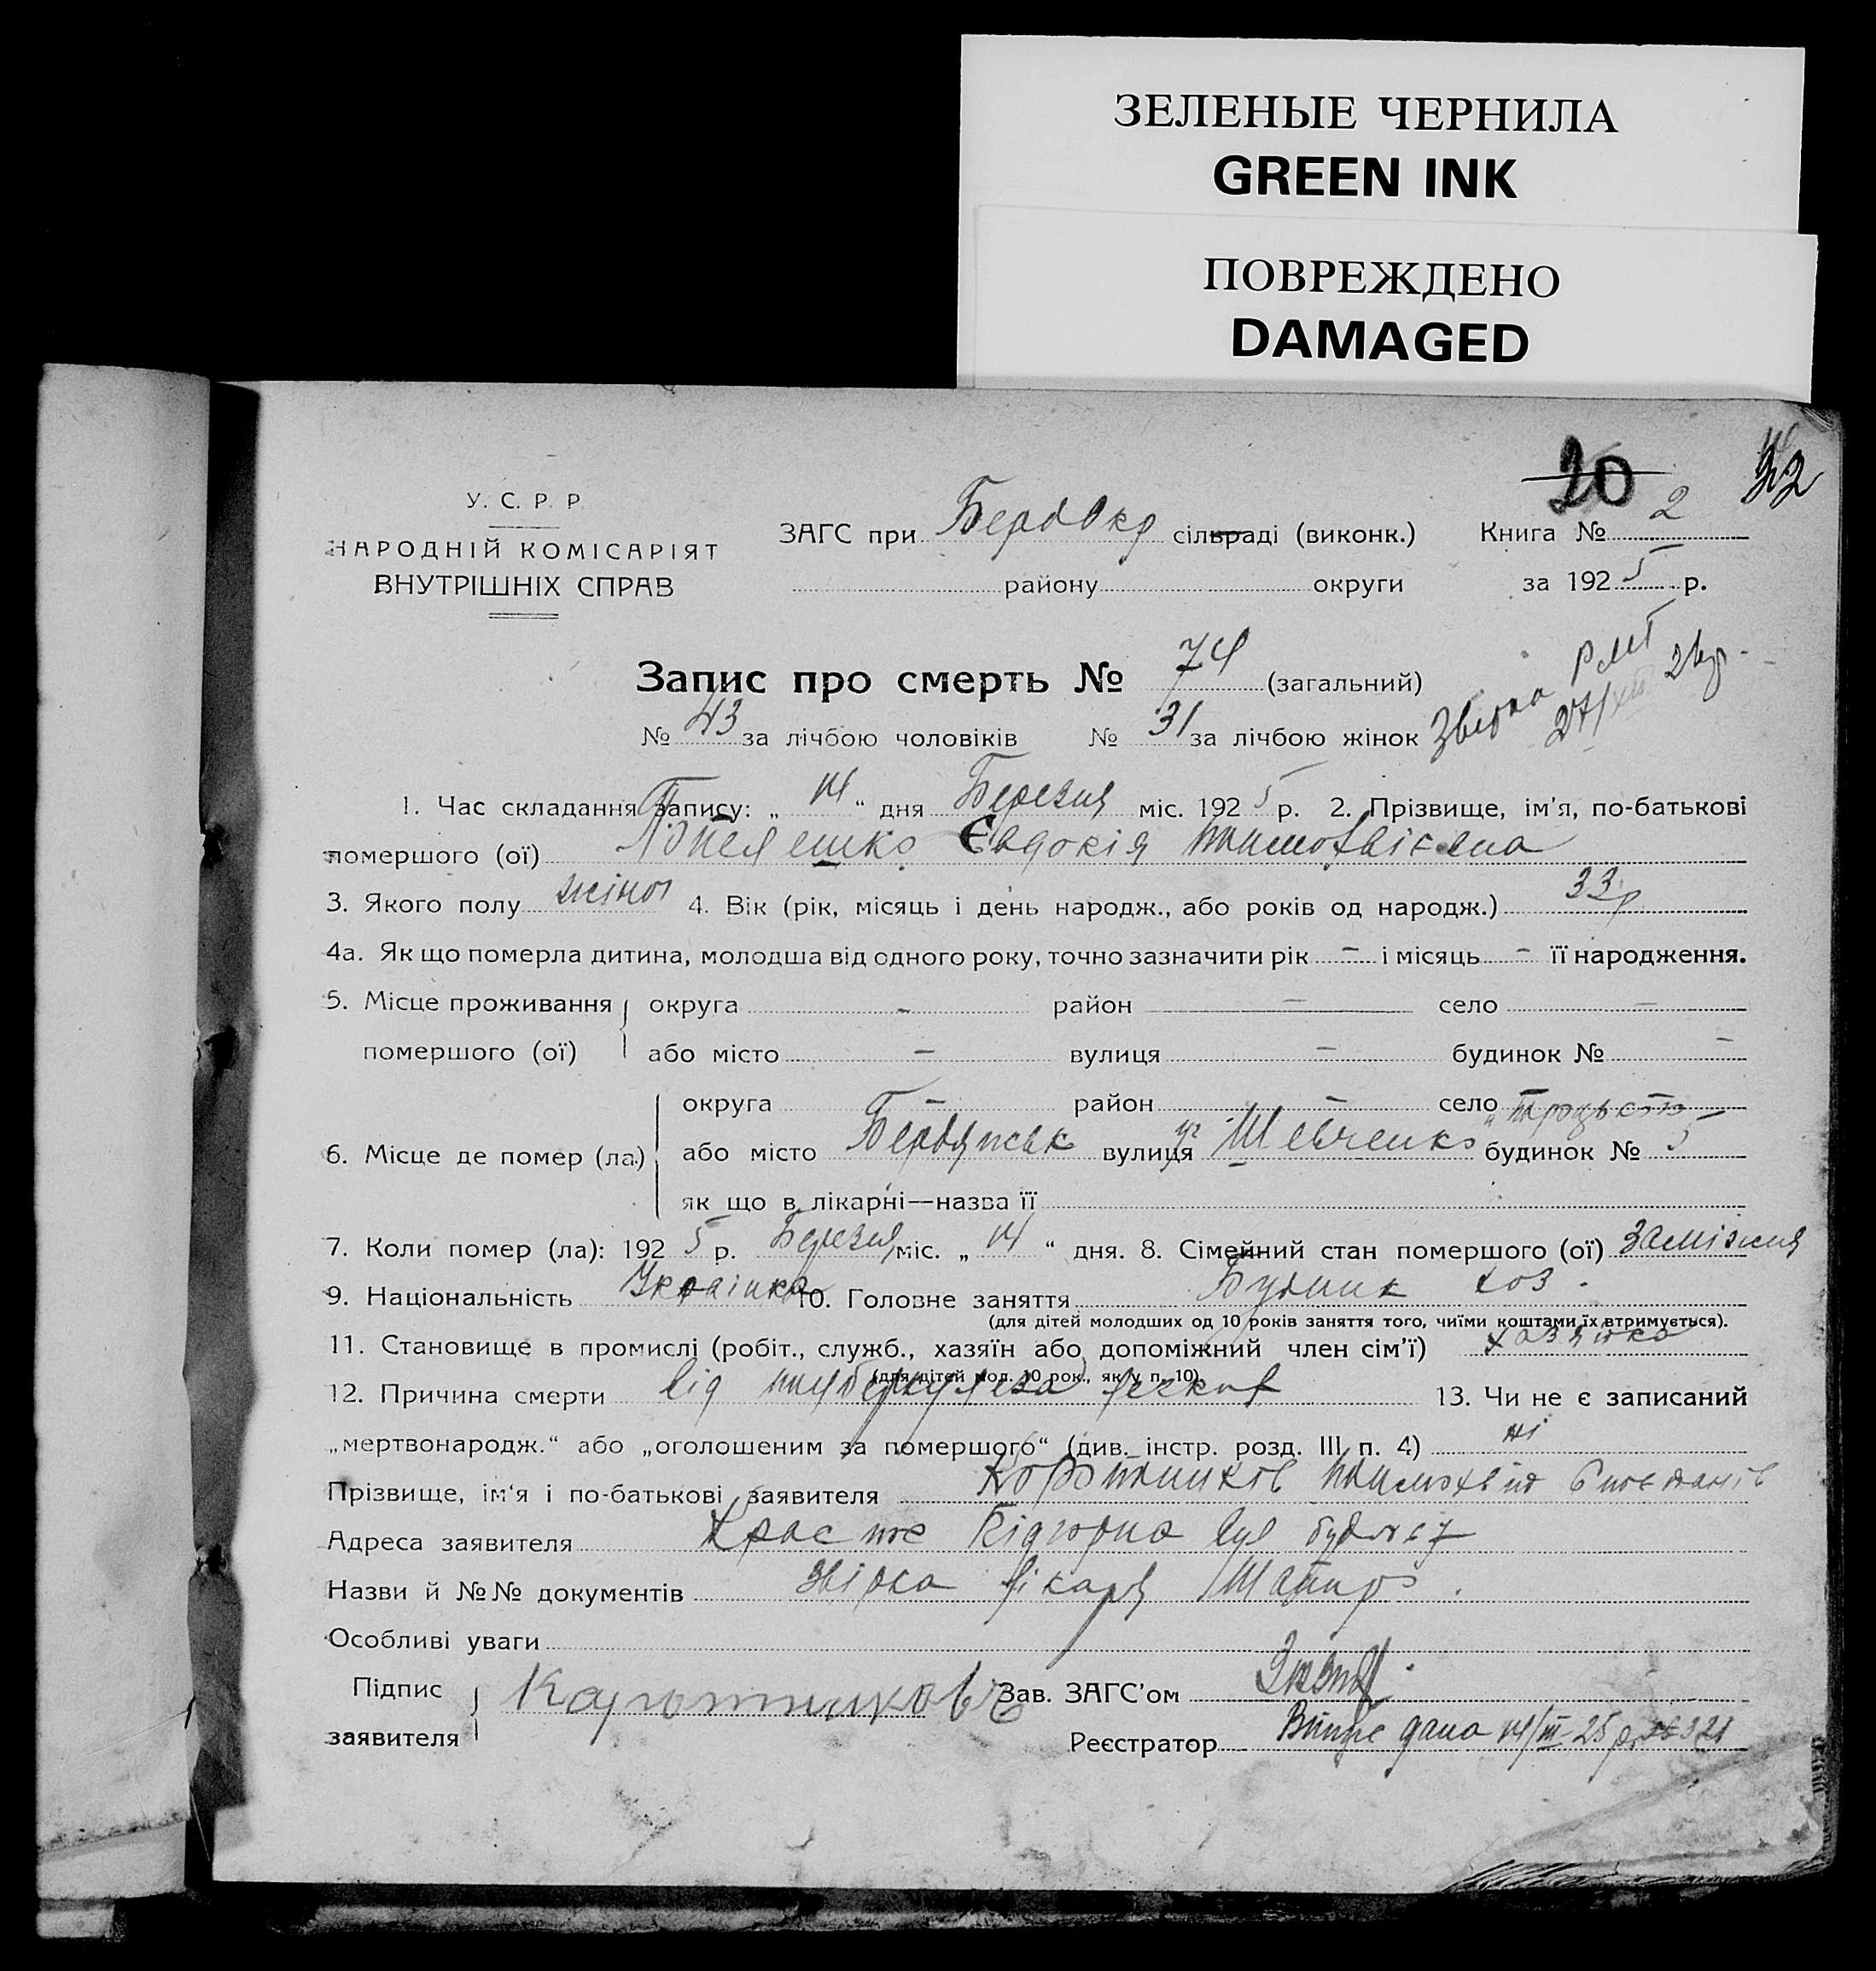 ЗЕЛЕНЫЕ ЧЕРНИЛА
GREEN INK
ПОВРЕЖДЕНО
DAMAGED
20 32
У. С. Р. Р.
НАРОДНІЙ КОМІСАРІЯТ
ВНУТРІШНІХ СПРАВ
ЗАГС при БердОкр сільраді (виконк.) Книга № 2
району округи за 1925 р.
Запис про смерть № 74 (загальний)
№ 43 за лічбою чоловіків № 31 за лічбою жінок
1. Час складання запису: „ 14 “ дня Березня міс. 1925 р. 2. Прізвище, ім’я, по-батькові
помершого (ої) Попелешко Євдокія Тимофвієвна
3. Якого полу жіноч 4. Вік (рік, місяць і день народж., або років од народж.) 33 р
4а. Як що померла дитина, молодша від одного року, точно зазначити рік – і місяць – її народження.
5. Місце проживання округа – район – село –
помершого (ої) або місто – вулиця – будинок № –
округа – район – село –
6. Місце де помер (ла) або місто Бердянськ вулиця Шевченко будинок № 5
як що в лікарні—назва її
7. Коли помер (ла): 1925 р. Березня міс. „ 14 “ дня. 8. Сімейний стан помершого (ої) заміжня
9. Національність Українка 10. Головне заняття хоз.
(для дітей молодших од 10 років заняття того, чиїми коштами їх втримується).
11. Становище в промислі (робіт., служб., хазяїн або допоміжний член сім’ї) хазяйка
(для дітей мол. 10 рок., як у п. 10)
12. Причина смерти від туберкульоза легких 13. Чи не є записаний
„мертвонародж.“ або „оголошеним за помершого“ (див. інстр. розд. III п. 4) ні
Прізвище, ім‘я і по-батькові заявителя Коротников Тимохвій
Адреса заявителя вул буд № 67
Назви й №№ документів лікаря Шапиро.
Особливі уваги
Підпис
заявителя
Коротников
Зав. ЗАГС’ом
Реєстратор дана 14/III 25 р. № 321